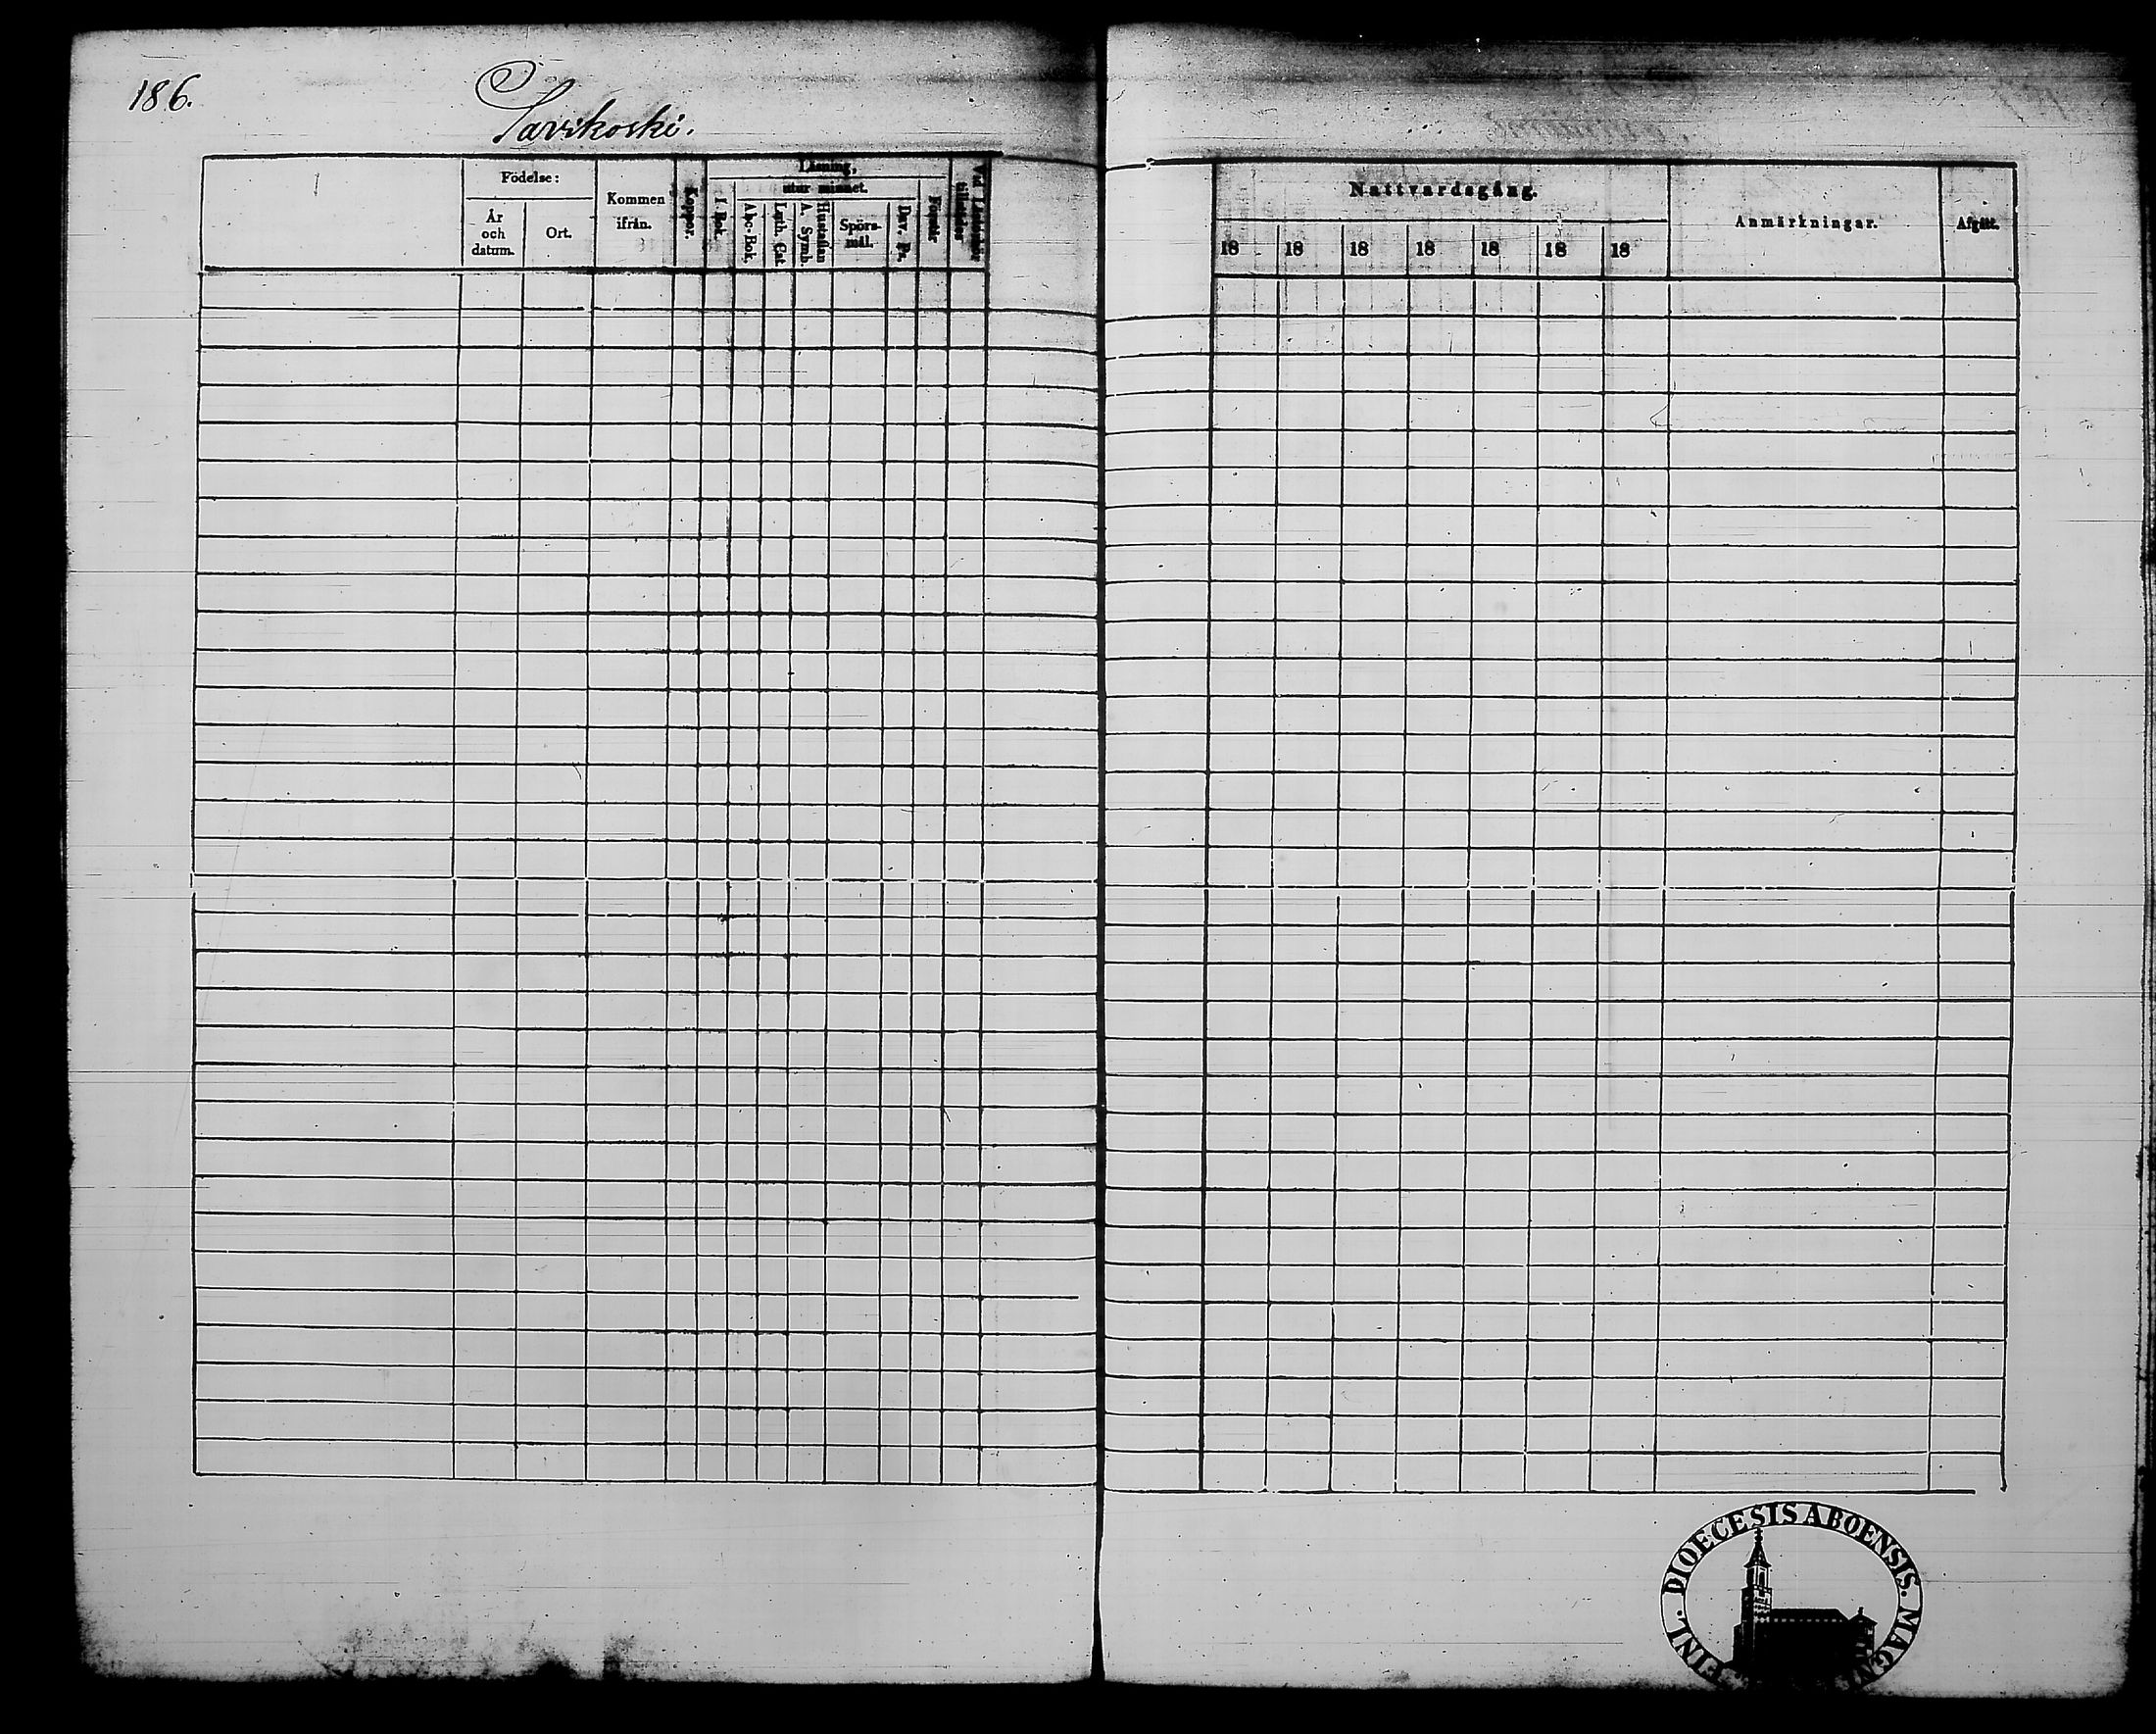 186.
Savikoski.
Födelse:
År och datum.
Ort.
Kommen ifrån.
Koppor.
Läsning,
utur minnet.
I Bok.
Abc-Bok,
Luth. Cat.
Hustaflan A. Symb.
Spörs-mål.
Dav. Ps.
Förstår
Nattvardsgång.
18 18 18 18 18 18 18
Anmärkningar.
Afgått.
FINL. DIOECESIS ABOENSIS. MAGNI